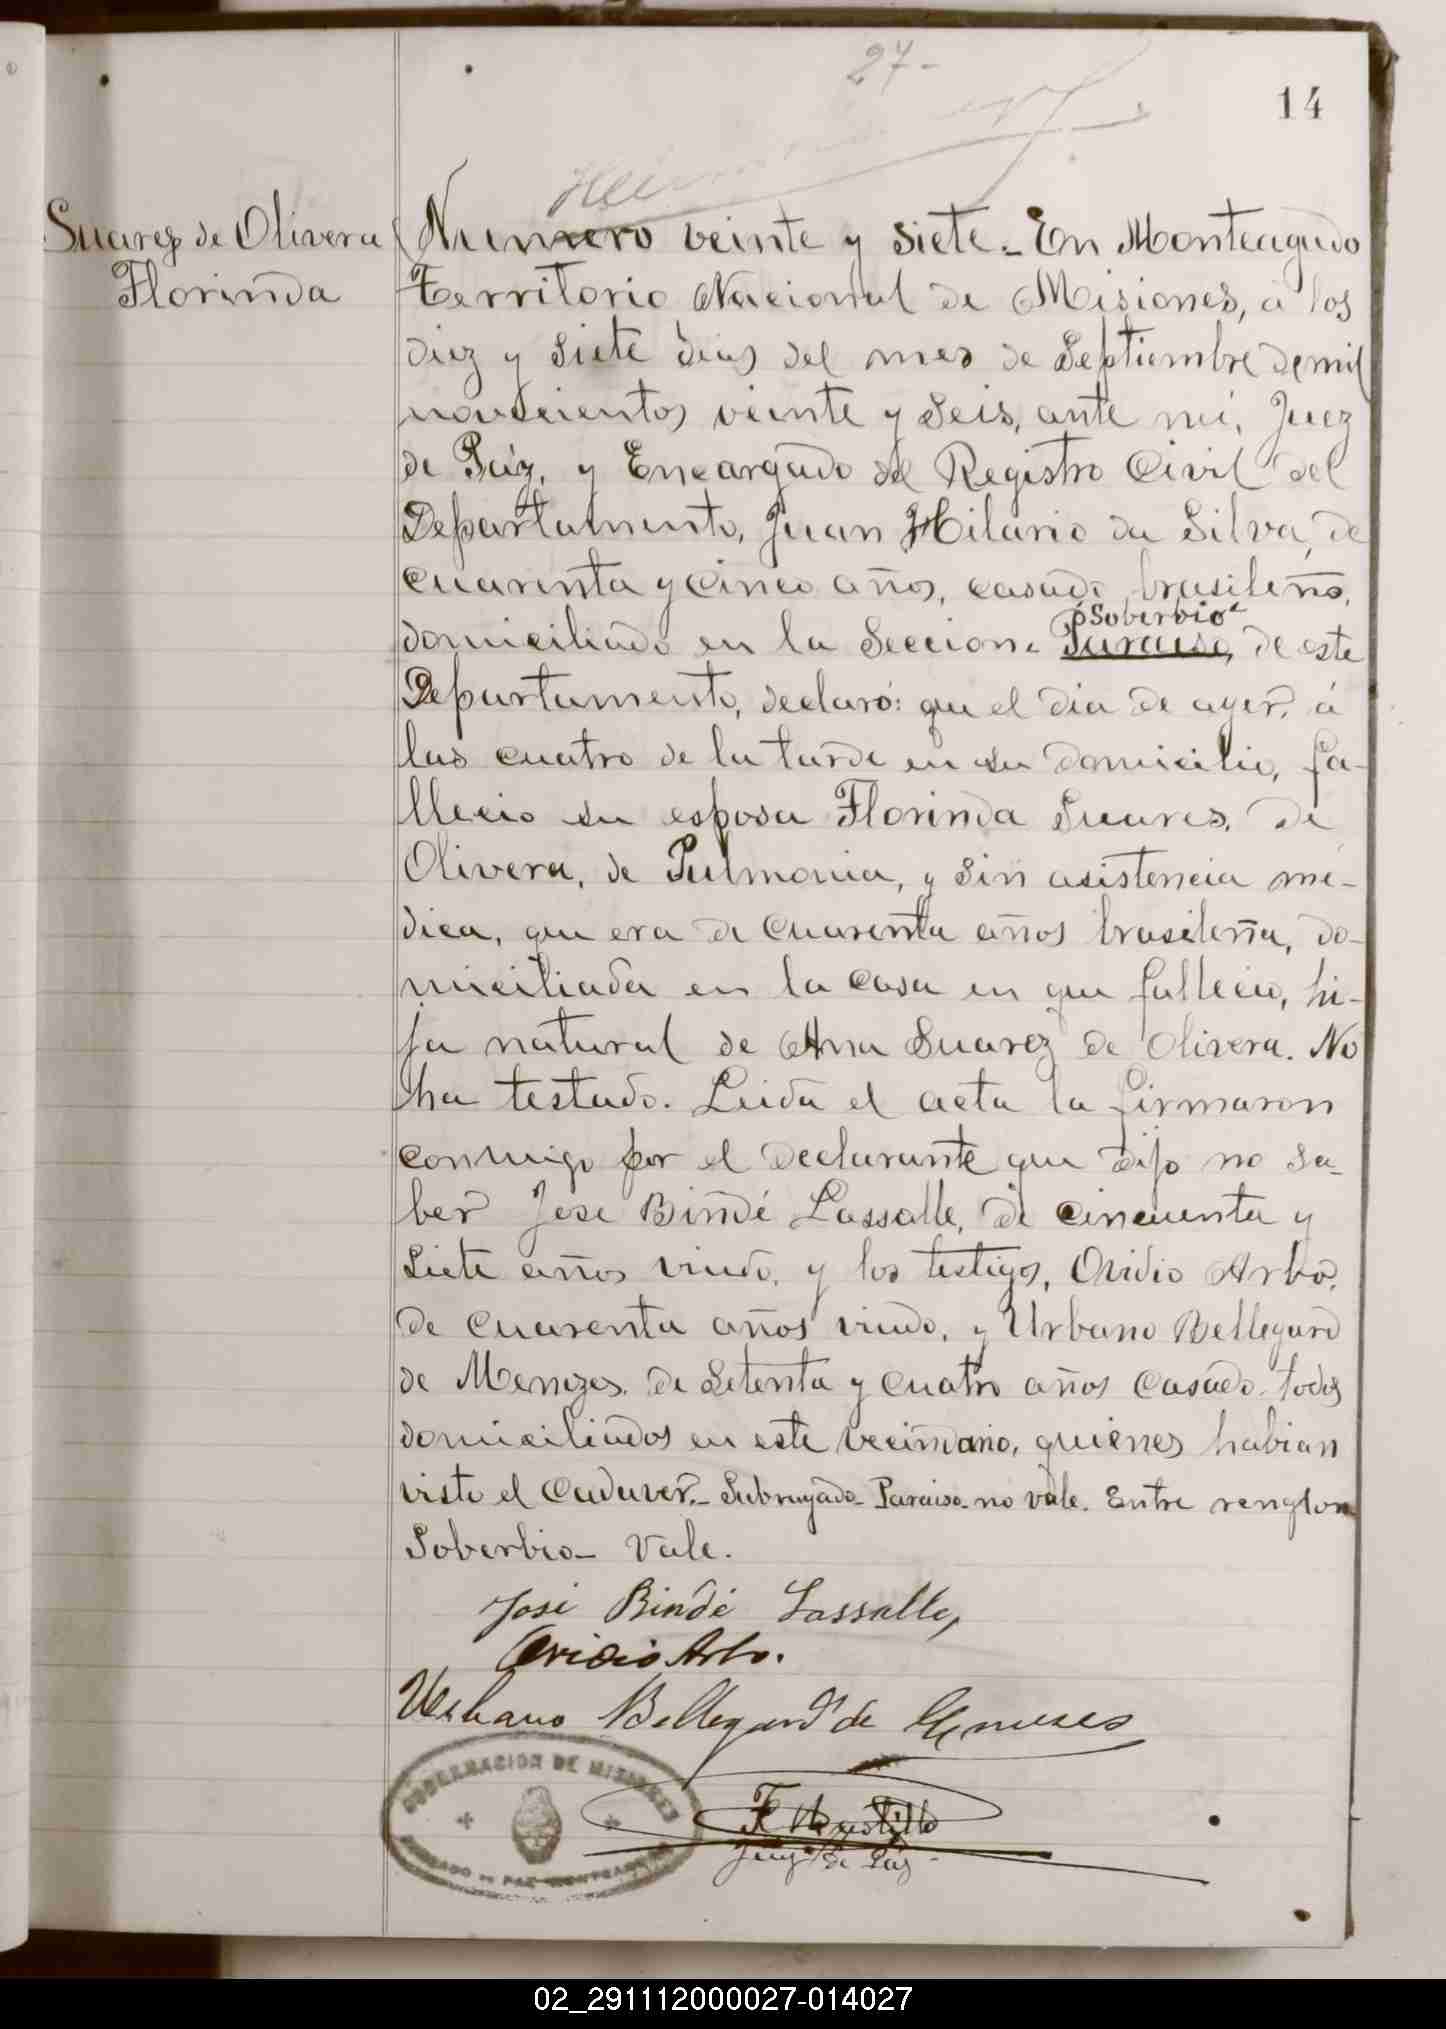 27-
14
Suarez de Olivera
Florinda
Numero veinte y siete - En Monteagudo
Territorio Nacional de Misiones, á los
diez y siete dias del mes de Septiembre de mil
novecientos veinte y seis, ante mi, Juez
de Páz, y Encargado del Registro Civil del
Departamento, Juan Hilario da Silva, de
cuarenta y cinco años, casado, brasileño,
"Soberbio"
domiciliado en la Seccion. Paraiso, de este
Departamento, declaró: que el dia de ayer, á
las cuatro de la tarde en su domicilio, fa-
llecio su esposa Florinda Suares, de
Olivera, de Pulmonia, y sin asistencia mé-
dica, que era de cuarenta años brasileña, do-
miciliada en la casa en que fallecio, hi-
ja natural de Ana Suarez de Olivera. No
ha testado. Leida el acta la firmaron
conmigo por el declarante que dijo no sa-
ber Jose Bindé Lassalle, de cincuenta y
siete años viudo, y los testigos, Ovidio Arbo,
de cuarenta años viudo, y Urbano Bellegard
de Menezes, de Setenta y cuatro años casado, todos
domiciliados en este vecindario, quienes habian
visto el cadaver. - Subrayado - Paraiso - no vale. Entre renglon
Soberbio - Vale.
José Bindé Lassalle,
Ovidio Arbo.
Urbano Bellegard de Meneses
GOBERNACION DE MISIONES
JUZGADO DE PAZ MONTEAGUDO
Juez de Páz
02_291112000027-014027